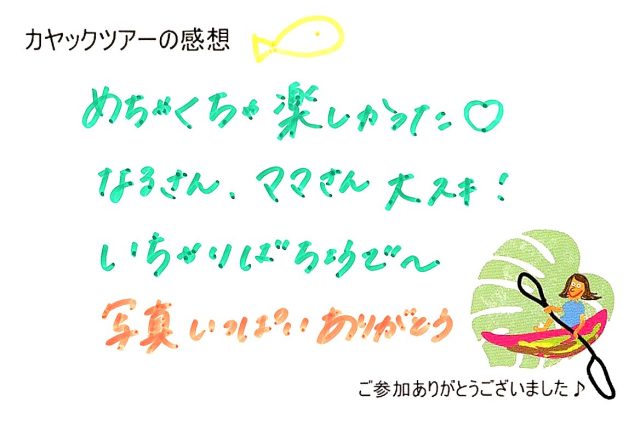 カヤックツアーの感想
めちゃくちゃ楽しかった♡
なるさん、ママさん大スキ!
いちゃりばちょーで〜
写真いっぱいありがとう
ご参加ありがとうございました♪